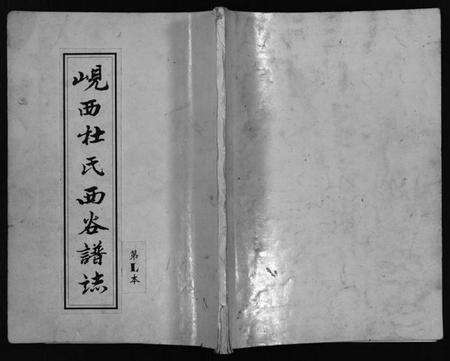 峴西杜氏西谷譜誌
第 本